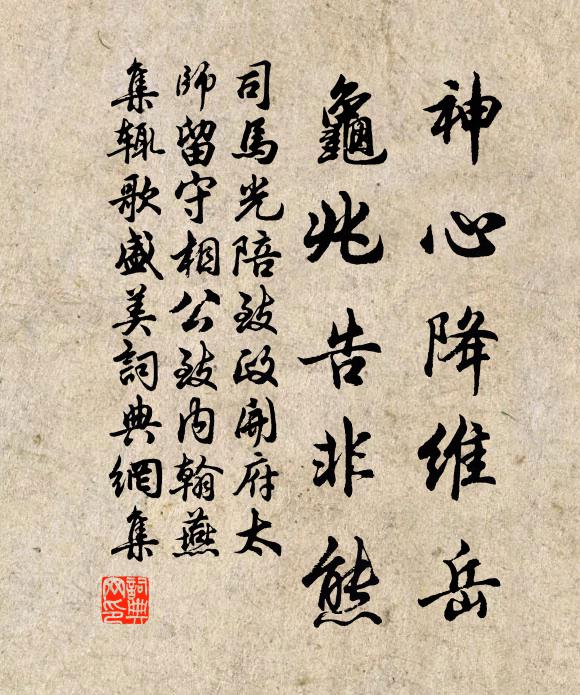 神心降維岳
龜兆告非熊
司馬光陪致政開府太
師留守相公致內翰燕
集輒歌盛美詞典網集